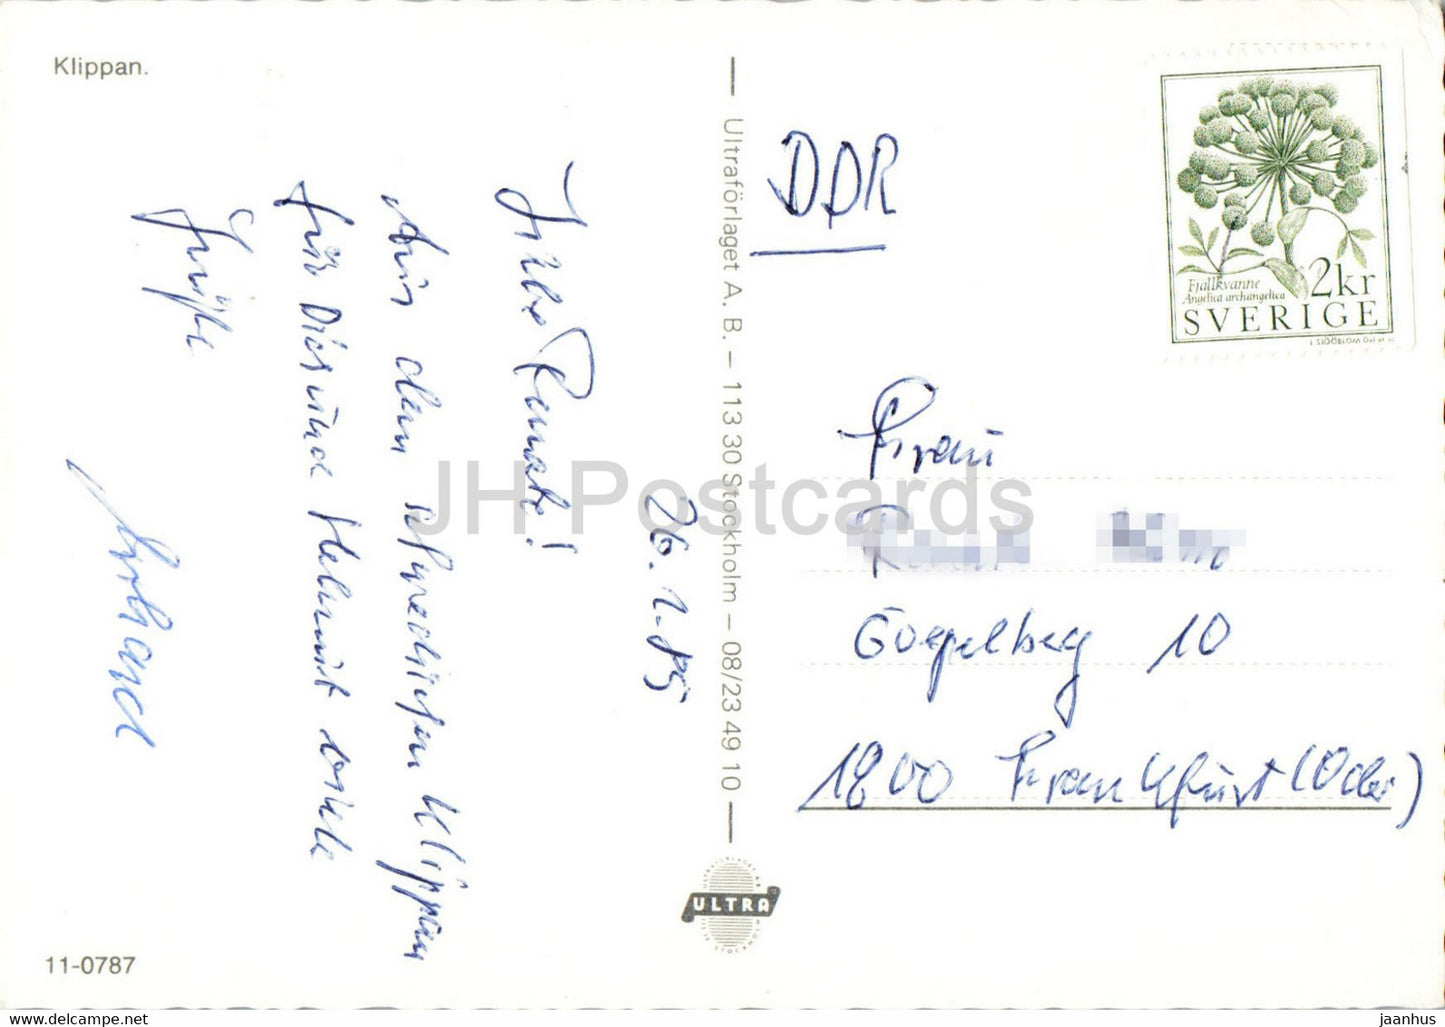 Klippan.
26.2.85
Liebe Renate!
Aus dem schwedischen Klippan
für Dich und Helmut viele
Grüße
Gerhard
11-0787
Ultraförlaget A. B. – 113 30 Stockholm – 08/23 49 10
ULTRA
DDR
Fjällkvanne
Angelica archangelica
2kr
SVERIGE
Frau
Gogelberg 10
1200 Frankfurt (Oder)
JH Postcards
www.delcampe.net
jaanhus